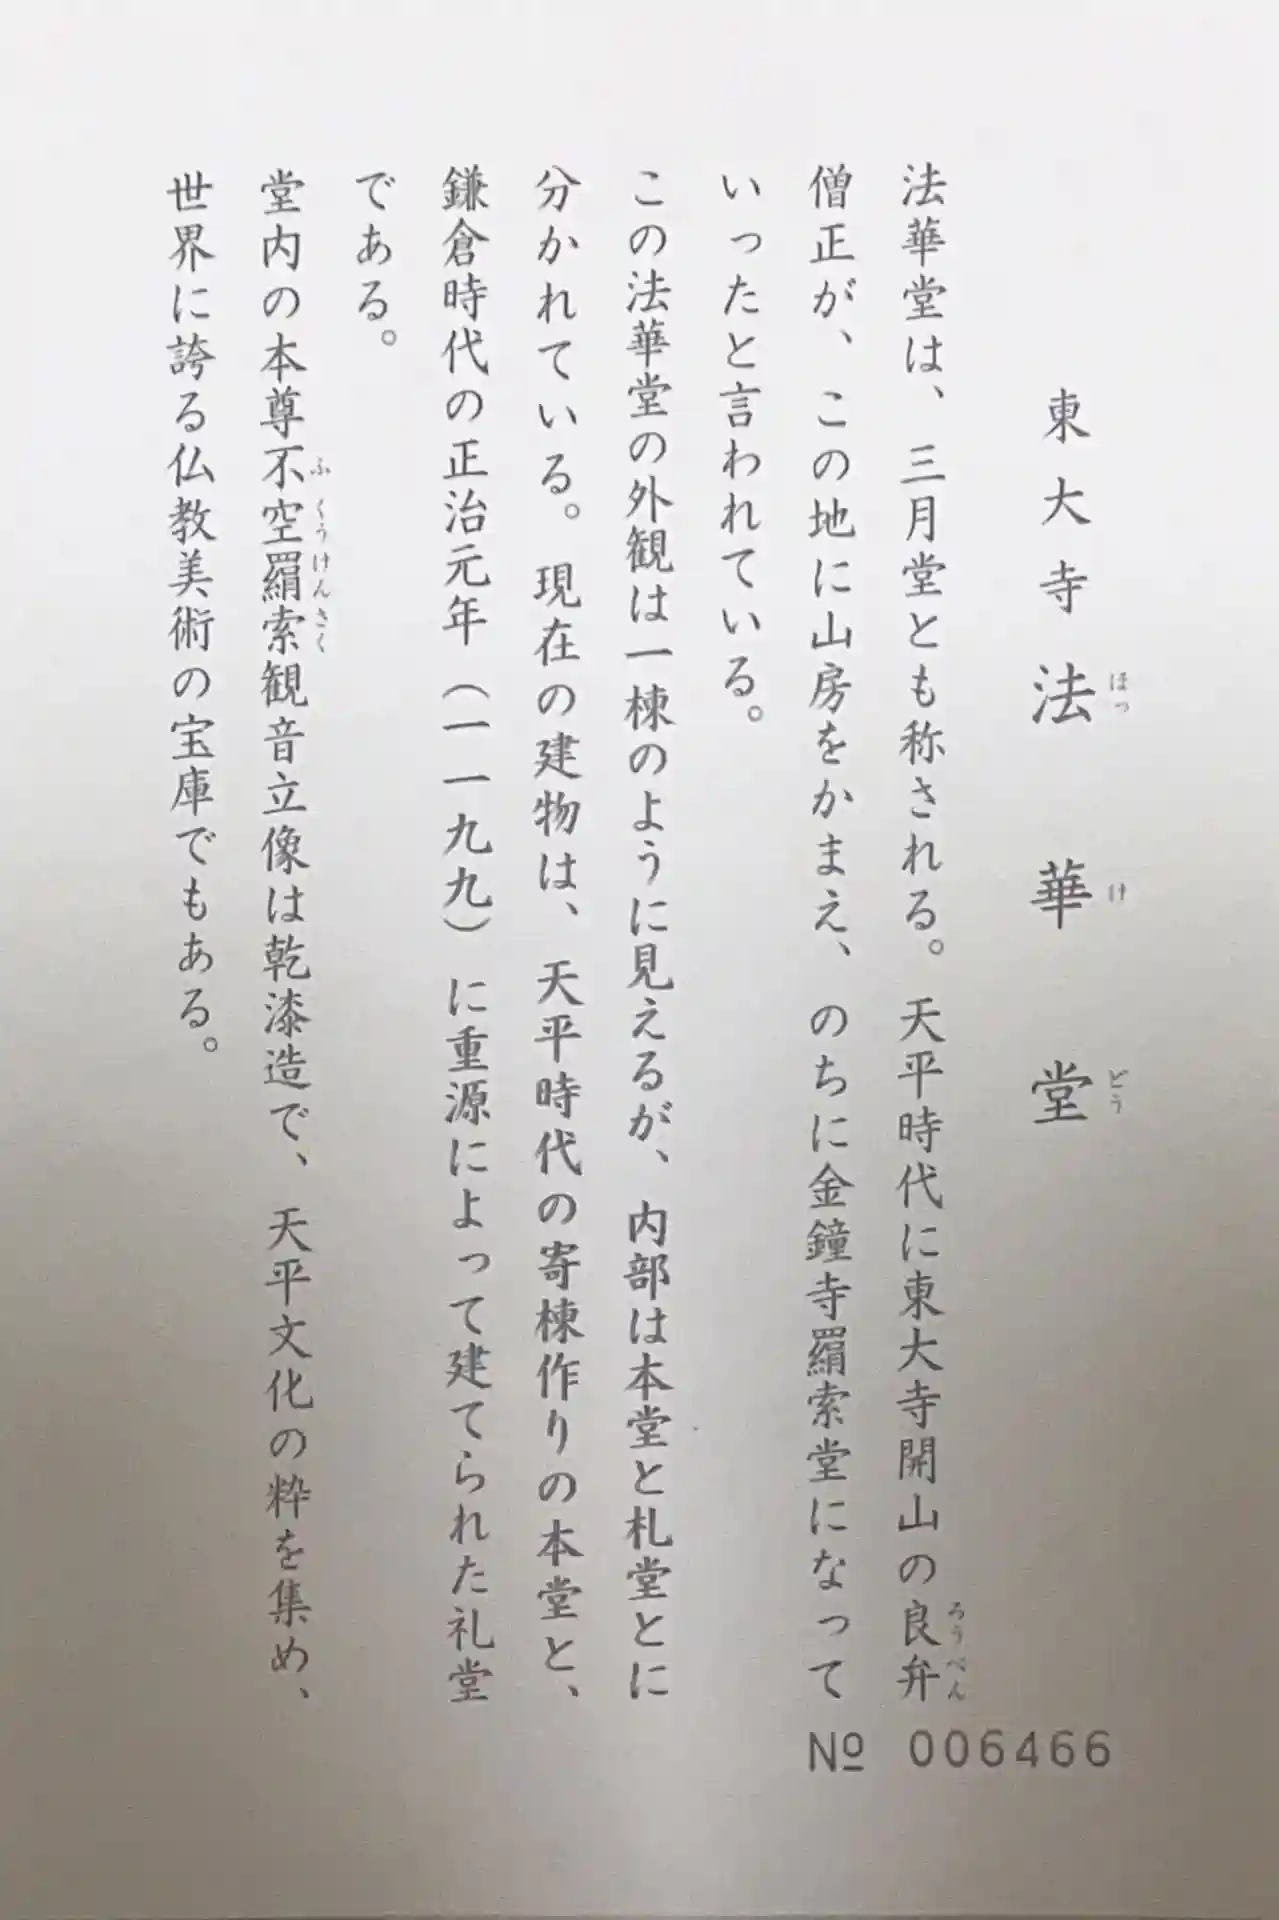 東大寺法華堂
ほっけどう
法華堂は、三月堂とも称される。天平時代に東大寺開山の良弁
ろうべん
僧正が、この地に山房をかまえ、のちに金鐘寺羂索堂になって
いったと言われている。
この法華堂の外観は一棟のように見えるが、内部は本堂と札堂とに
分かれている。現在の建物は、天平時代の寄棟作りの本堂と、
鎌倉時代の正治元年（一一九九）に重源によって建てられた礼堂
である。
堂内の本尊不空羂索観音立像は乾漆造で、天平文化の粋を集め、
ふくうけんさく
世界に誇る仏教美術の宝庫でもある。
№ 006466